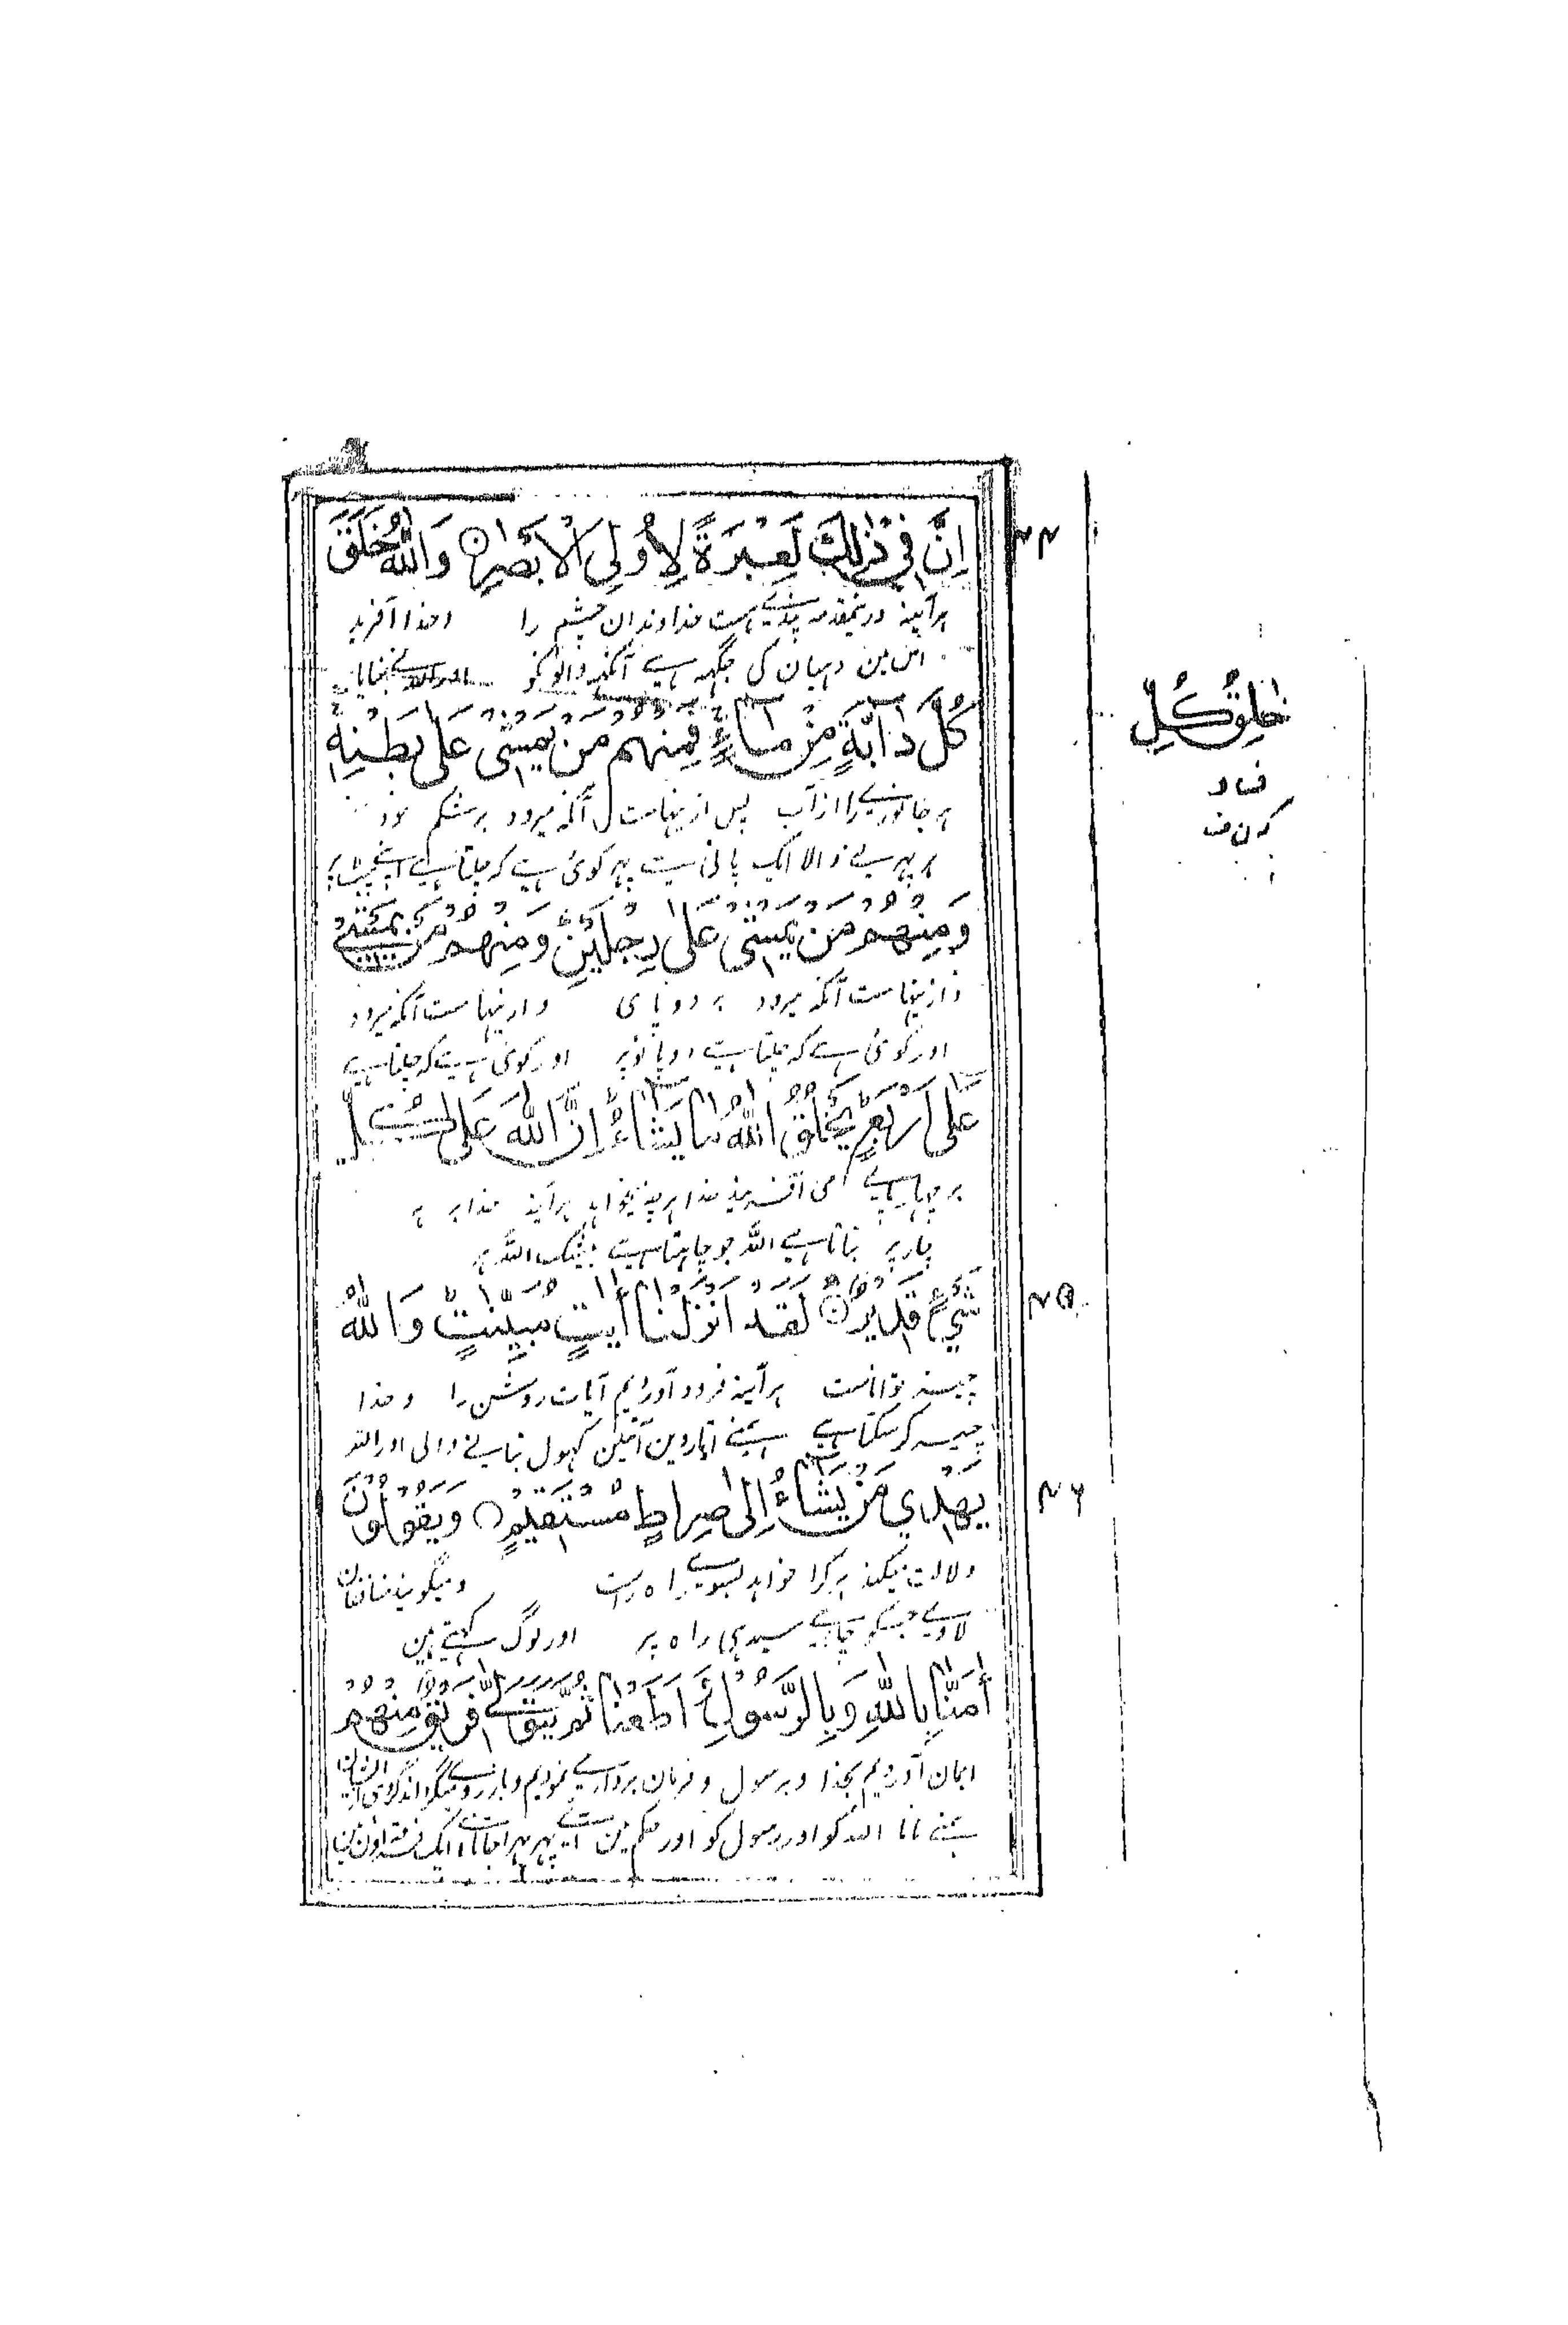 اِنَّ فِیْ ذٰلِكَ لَعِبْرَةً لِّاُولِی الْاَبْصٰرِ وَاللّٰهُ خَلَقَ
۴۴
هرآینه درینمقدمه پندی هست خداوندان چشم را وخدا آفرید
اس مین دهیان کی جگهه ہے آنکهه والونکو اور الله نے بنایا
كُلَّ دَآبَّةٍ مِّنْ مَّآءٍ فَمِنْهُمْ مَنْ یَّمْشِیْ عَلٰی بَطْنِهٖ
خٰلِقُ كُلِّ
هر جانوریرا از آب پس ازینهاست آنکه میرود برشکم خود
هر پهرنے والا ایک پانی سے پهر کوئی ہے که چلتا ہے اپنے پیٹ پر
وَمِنْهُمْ مَنْ یَّمْشِیْ عَلٰی رِجْلَیْنِ وَمِنْهُمْ مَنْ یَّمْشِیْ
وازینهاست آنکه میرود بر دو پای وازینهاست آنکه میرود
اور کوئی ہے که چلتا ہے دو پانو پر اور کوئی ہے که چلتا ہے
عَلٰی اَرْبَعٍ یَخْلُقُ اللّٰهُ مَا یَشَآءُ اِنَّ اللّٰهَ عَلٰی كُلِّ
بر چهار پای می آفریند خدا هرچه میخواهد هرآینه خدا بر هر
چار پر بناتا ہے الله جو چاہتا ہے بیشک الله هر
شَیْءٍ قَدِیْرٌ لَقَدْ اَنْزَلْنَا اٰیٰتٍ مُّبَیِّنٰتٍ وَاللّٰهُ
۴۵
چیز تواناست هرآینه فرود آوردیم آیات روشن را وخدا
چیز کر سکتا ہے ہمنے اتاردین آیتین کهول بتانے والی اور الله
یَهْدِیْ مَنْ یَّشَآءُ اِلٰی صِرَاطٍ مُّسْتَقِیْمٍ وَیَقُوْلُوْنَ
۴۶
دلالت میکند هرکرا خواهد بسوی راه راست ومیگویند منافقان
لاوے جسکو چاہے سیدهی راه پر اور لوگ کہتے ہین
اٰمَنَّا بِاللّٰهِ وَبِالرَّسُوْلِ وَاَطَعْنَا ثُمَّ یَتَوَلّٰی فَرِیْقٌ مِّنْهُمْ
ایمان آوردیم بخدا وبرسول وفرمان برداری نمودیم وباز روی میگرداند گروهی ازیشان
ہمنے مانا الله کو اور رسول کو اور حکم مین آئے پهر پهرا جاتا ہے ایک فرقه اون مین